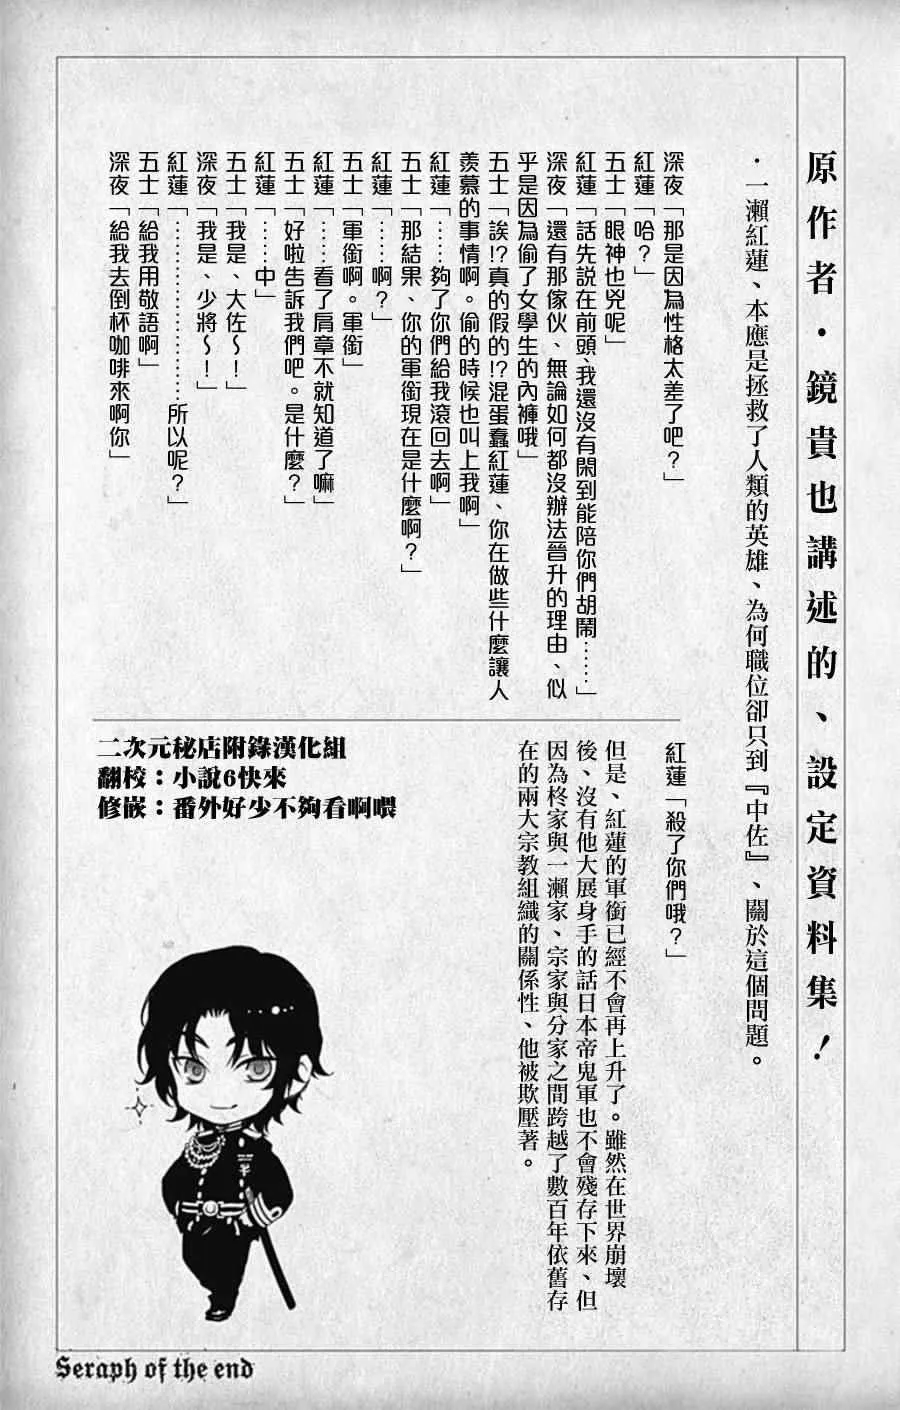 原作者・鏡貴也講述的、設定資料集！
・一瀨紅蓮、本應是拯救了人類的英雄、為何職位卻只到『中佐』、關於這個問題。
深夜「那是因為性格太差了吧？」
紅蓮「哈？」
五士「眼神也兇呢」
紅蓮「話先説在前頭、我還沒有閑到能陪你們胡鬧……」
深夜「還有那傢伙、無論如何都沒辦法晉升的理由、似
乎是因為偷了女學生的內褲哦」
五士「誒!?真的假的!?混蛋蠢紅蓮、你在做些什麼讓人
羨慕的事情啊。偷的時候也叫上我啊」
紅蓮「……夠了你們給我滾回去啊」
五士「那結果、你的軍銜現在是什麼啊？」
紅蓮「……啊？」
五士「軍銜啊。軍銜」
紅蓮「……看了肩章不就知道了嘛」
五士「好啦告訴我們吧。是什麼？」
紅蓮「……中」
五士「我是、大佐～！」
深夜「我是、少將～！」
紅蓮「……………………所以呢？」
五士「給我用敬語啊」
深夜「給我去倒杯咖啡來啊你」
紅蓮「殺了你們哦？」
但是、紅蓮的軍銜已經不會再上升了。雖然在世界崩壞
後、沒有他大展身手的話日本帝鬼軍也不會殘存下來、但
因為柊家與一瀨家、宗家與分家之間跨越了數百年依舊存
在的兩大宗教組織的關係性、他被欺壓著。
二次元秘店附錄漢化組
翻校：小說6快來
修嵌：番外好少不夠看啊喂
Seraph of the end